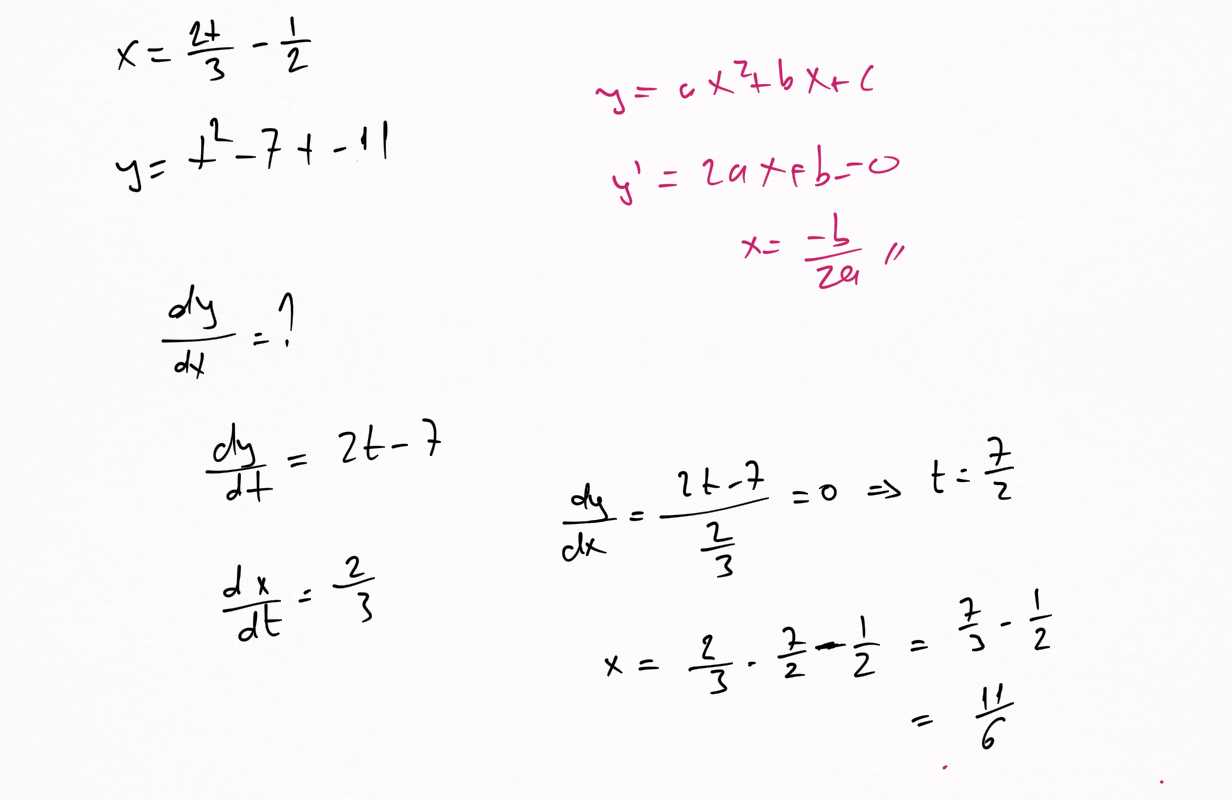 x = 2t/3 - 1/2
y = t² - 7t - 11
y = ax² + bx + c
y' = 2ax + b = 0
x = -b/2a //
dy/dx = ?
dy/dt = 2t - 7
dx/dt = 2/3
dy/dx = (2t - 7)/(2/3) = 0 ⇒ t = 7/2
x = 2/3 · 7/2 - 1/2 = 7/3 - 1/2
= 11/6